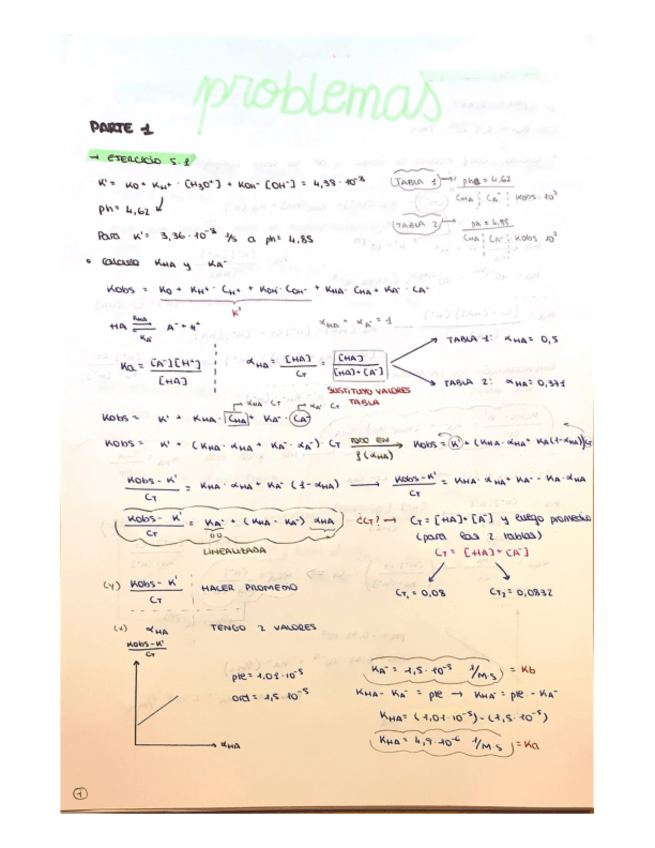 problemas
PARTE 1
→ EJERCICIO 5.1
K' = K0 + KH+ · [H3O+] + KOH- [OH-] = 4,38 · 10⁻⁸
TABLA 1 → ph = 4,62
CHA | CA- | Kobs · 10⁷
ph = 4,62
TABLA 2 → ph = 4,85
CHA | CA- | Kobs 10⁷
Para K' = 3,36 · 10⁻⁸ 1/s a ph = 4,85
• Calculo KHA y KA-
Kobs = K0 + KH+ · CH+ + KOH- · COH- + KHA · CHA + KA- · CA-
K'
HA ⇌ A- + H+
KHA
KA-
αHA + αA- = 1
Ka = [A-][H+] / [HA]
αHA = [HA] / CT = [HA] / [HA]+[A-]
TABLA 1: αHA = 0,5
TABLA 2: αHA = 0,371
SUSTITUYO VALORES TABLA
αHA · CT
αA- · CT
Kobs = K' + KHA · CHA + KA- · CA-
Kobs = K' + (KHA · αHA + KA- · αA-) · CT
TODO EN f(αHA)
Kobs = K' + (KHA · αHA + KA(1-αHA)) CT
Kobs - K' / CT = KHA · αHA + KA- (1-αHA) → Kobs - K' / CT = KHA · αHA + KA- - KA · αHA
Kobs - K' / CT = KA- + (KHA - KA-) αHA
¿CT? → CT = [HA] + [A-] y luego promedio
(para las 2 tablas)
LINEALIZADA
CT = [HA] + [A-]
CT1 = 0,08
CT2 = 0,0832
(y) Kobs - K' / CT
HACER PROMEDIO
(x) αHA
TENGO 2 VALORES
Kobs - K' / CT
αHA
pte = 1,01 · 10⁻⁵
ord = 1,5 · 10⁻⁵
KA- = 1,5 · 10⁻⁵ 1/M·s = Kb
KHA - KA- = pte → KHA = pte - KA-
KHA = (1,01 · 10⁻⁵) - (1,5 · 10⁻⁵)
KHA = 4,9 · 10⁻⁶ 1/M·s = Ka
1